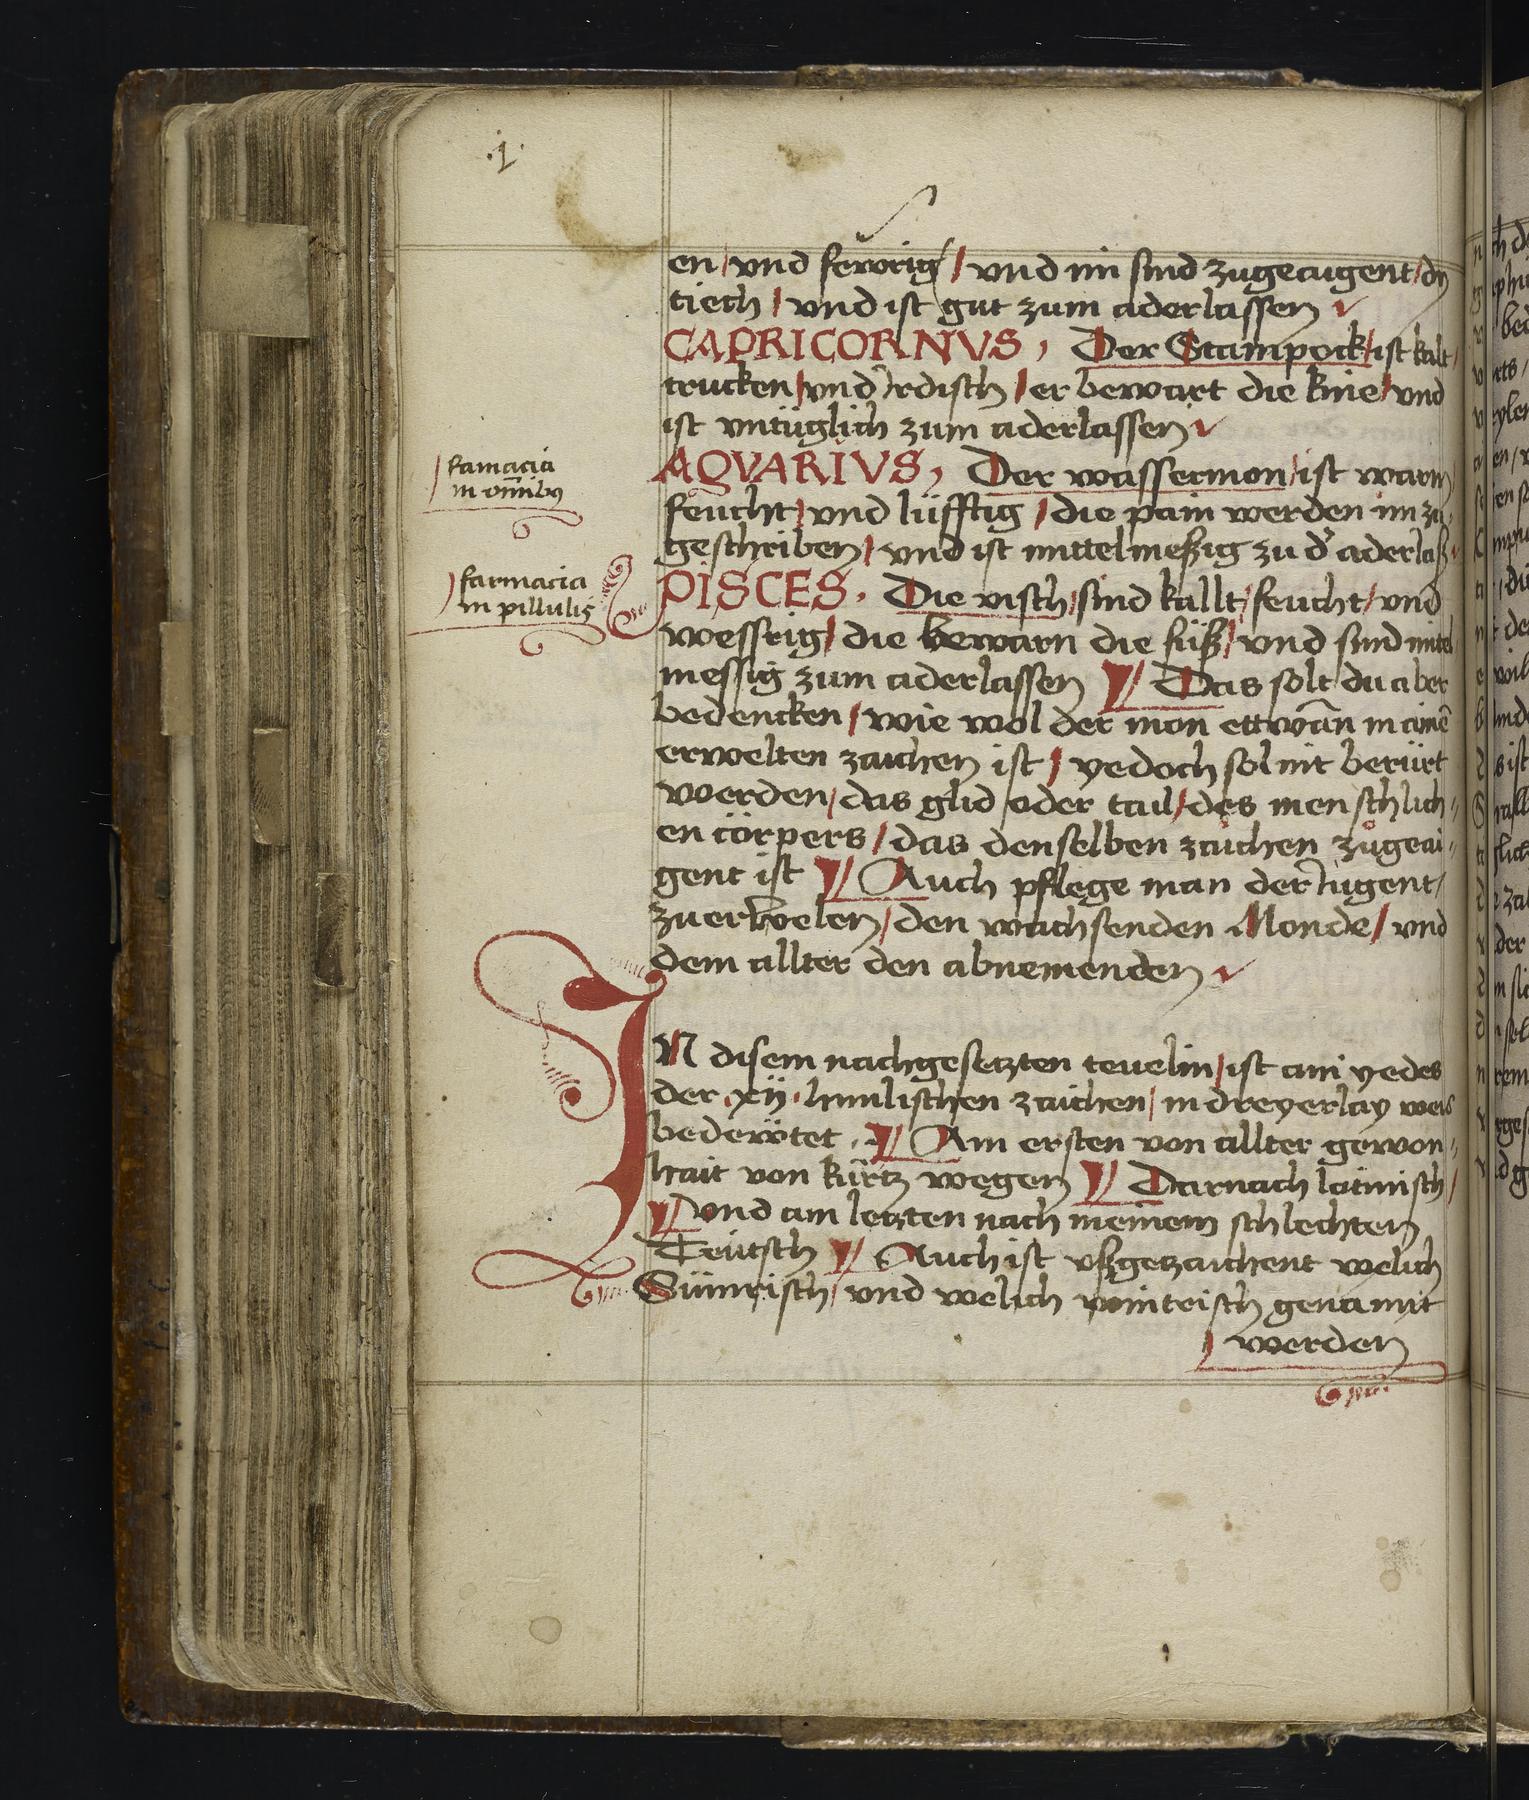 .1.
en / vnd fewrig / vnd im sind zugeaigent / dy
tiech / vnd ist gut zum aderlassen
CAPRICORNVS, Der Stainpock / ist kalt /
trucken / vnd irdisch / er bewart die knie / vnd
ist vntüglich zum aderlassen
AQVARIVS, Der wasserman / ist warm
feucht / vnd lüfftig / die pain werden im zu
geschriben / vnd ist mittelmeßig zu d' aderlaß
famacia
in omnibus
PISCES. Die visch / sind kallt / feucht / vnd
farmacia
in pillulis
wessrig / die bewarn die füß / vnd sind mitel
messig zum aderlassen Das solt du aber
bedencken / wie wol der mon ettwan in aine
erwelten zaichen ist / yedoch sol nit berürt
werden / das glid oder tail / des menschlich-
en cörpers / das denselben zaichen zůgeai-
gent ist Auch pflege man der iugent /
zuerwelen / den wachsenden Monde / vnd
dem allter den abnemenden
IN disem nachgesetzten teuelin / ist ain yedes
der .xij. himlischen zaichen / in dreyerlay weis
bedewtet . Am ersten von allter gewon-
hait von kürtz wegen Darnach latinisch /
vnd am letzten nach meinem schlechten
Teutsch Auch ist vßgetzaichent welich
Sümrisch / vnd welich wintrisch genannt
werden